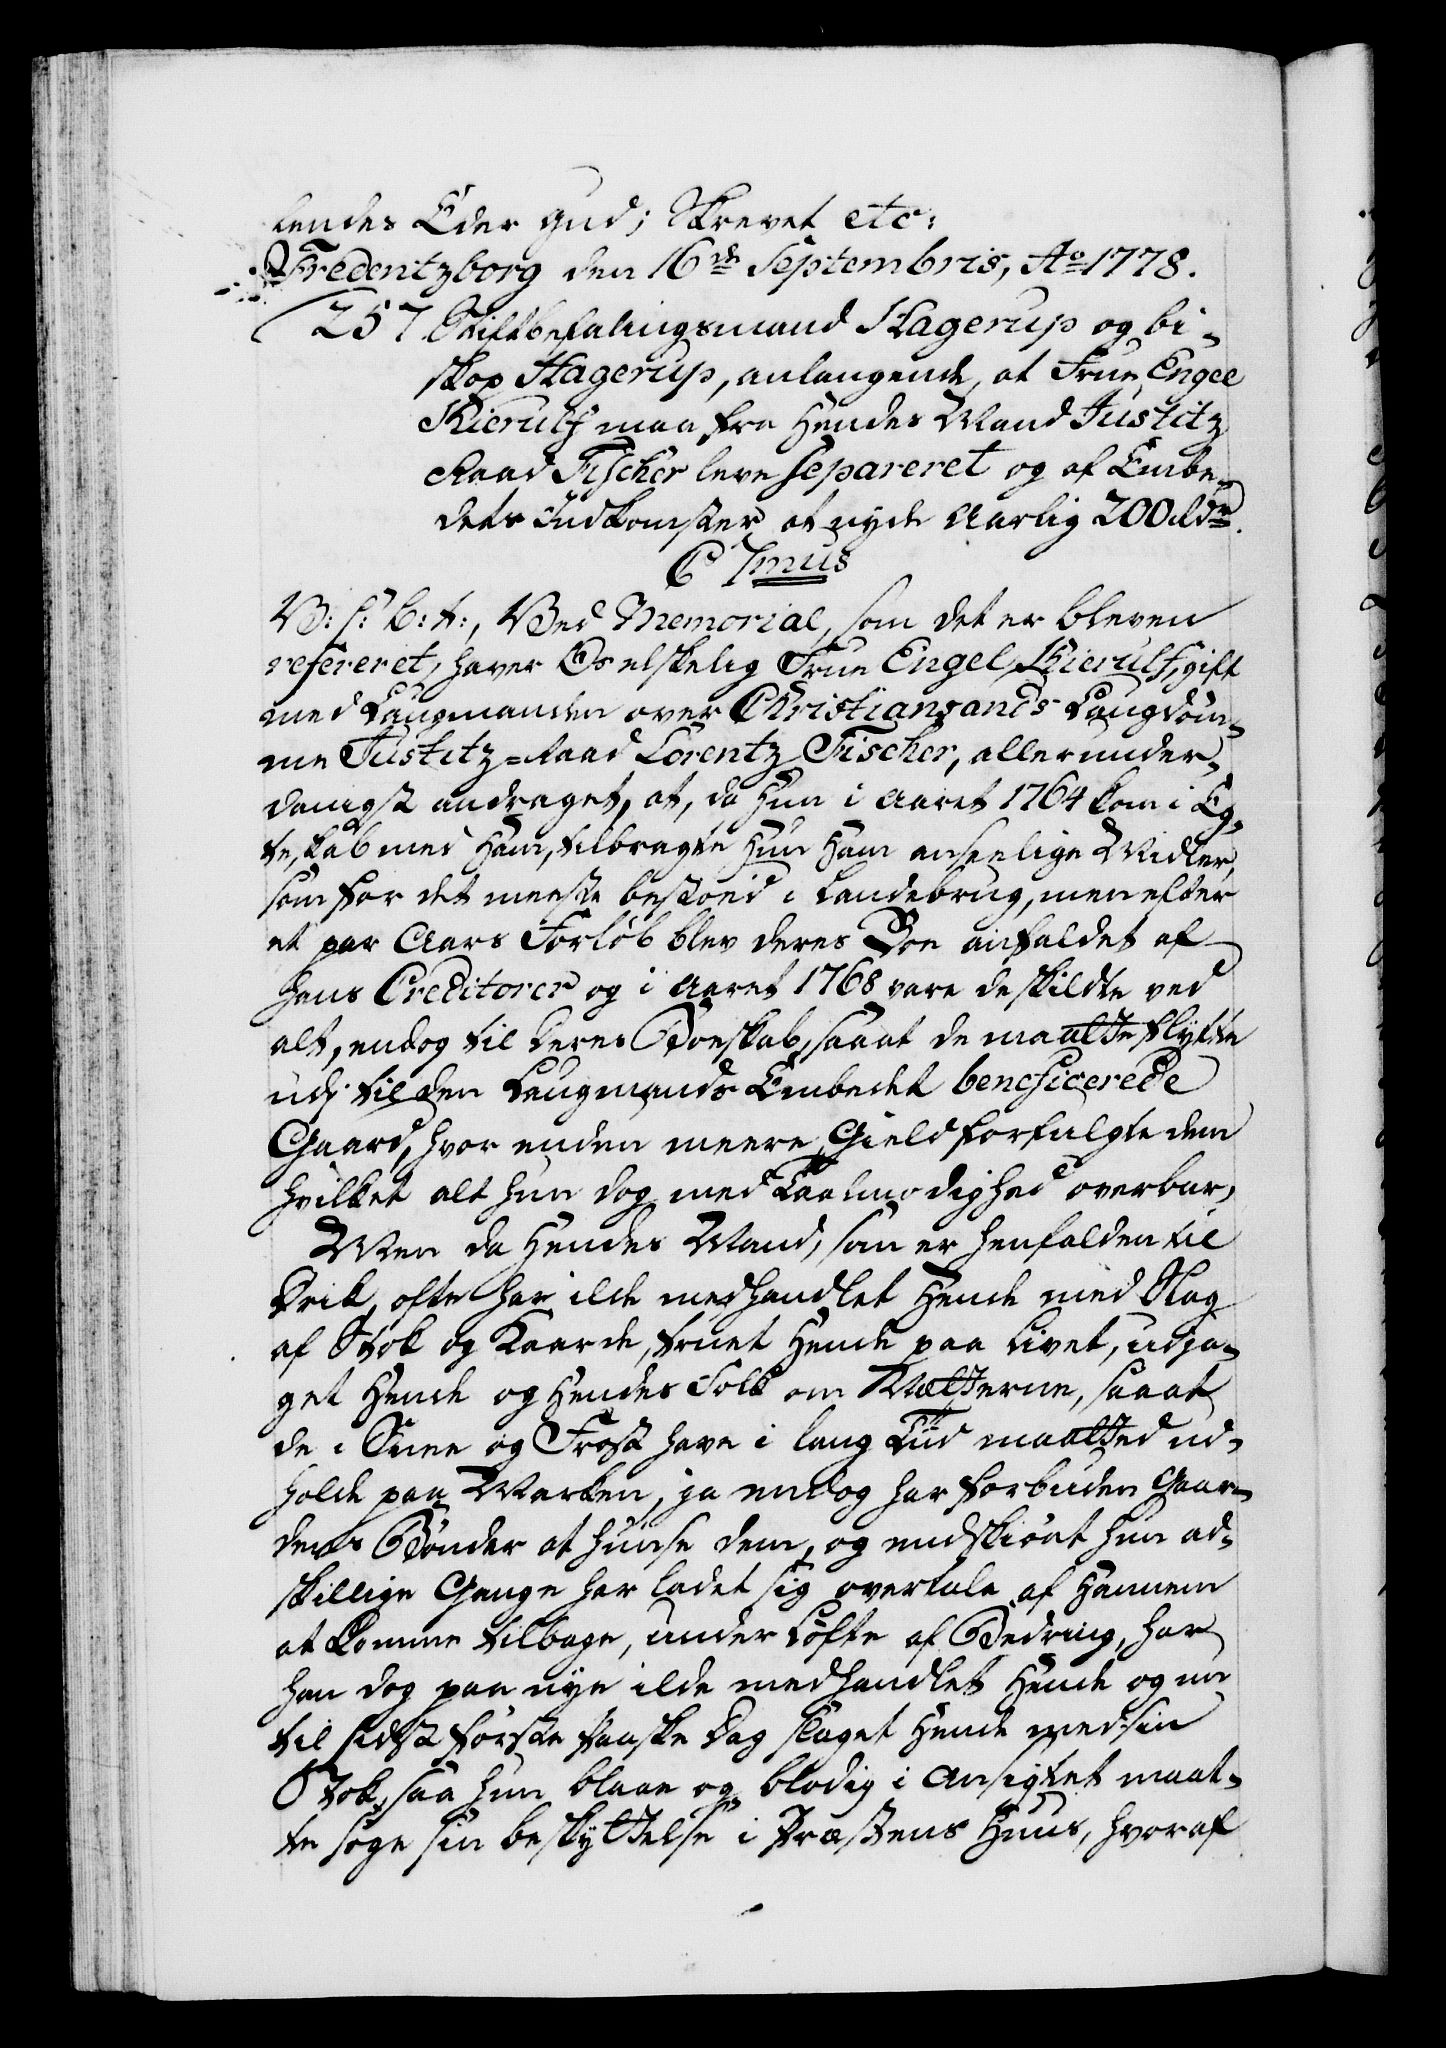 lendes Eder Gud; Skrevet etc:
Fredentzborg den 16de Septembris, Ao 1778.
257 Stiftbefalingsmand Hagerup og bi-
skop Hagerup, anlangende, at Frue Engel
Kierulf maa fra Hendes Mand Justitz
Raad Fischer leve separeret og af Embe-
dets Indkomster at nyde Aarlig 200 rdr.
C 7mus
V: S: B: t:, Ved Memorial, som det er bleven
refereret, haver Os elskelig Frue Engel Kierulf, gift
med Laugmanden over Christiansands Laugdøm-
me Justitz-Raad Lorentz Fischer, allerunder-
danigst andraget, at, da Hun i Aaret 1764 kom i Eg-
teskab med Ham, tilbragte Hun Ham anseelige Midler,
som for det meeste bestoed i Landebrug, men efter
et par Aars Forløb blev deres Boe anfaldet af
hans Creditorer og i Aaret 1768 vare de skildte ved
alt, endog til deres Boeskab, saaat de maatte flytte
ud til den Laugmands Embedet beneficerede
Gaard, hvor enden meere Gield forfulgte dem
hvilket alt hun dog med Taalmodighed overbar,
Men da Hendes Mand, som er henfalden til
Drik, ofte har ilde medhandlet Hende med Slag
af Stok og Kaarde, truet Hende paa Livet, udja-
get Hende og Hendes Folk om Nætterne, saaat
de i Snee og Frost have i lang Tiid maatted ud-
holde paa Marken, ja endog har forbuden Gaar-
dens Bønder at huuse dem, og endskiøndt hun ad-
skillige Gange har ladet sig overtale af Hannem
at komme tilbage, under Løfte af Bedring, har
han dog paa nye ilde medhandlet Hende og nu
til sidst første Paaske Dag slaget Hende med sin
Stok, saa hun blaae og blodig i Ansigtet maat-
te søge sin beskyttelse i Præstens Huus, hvoraf